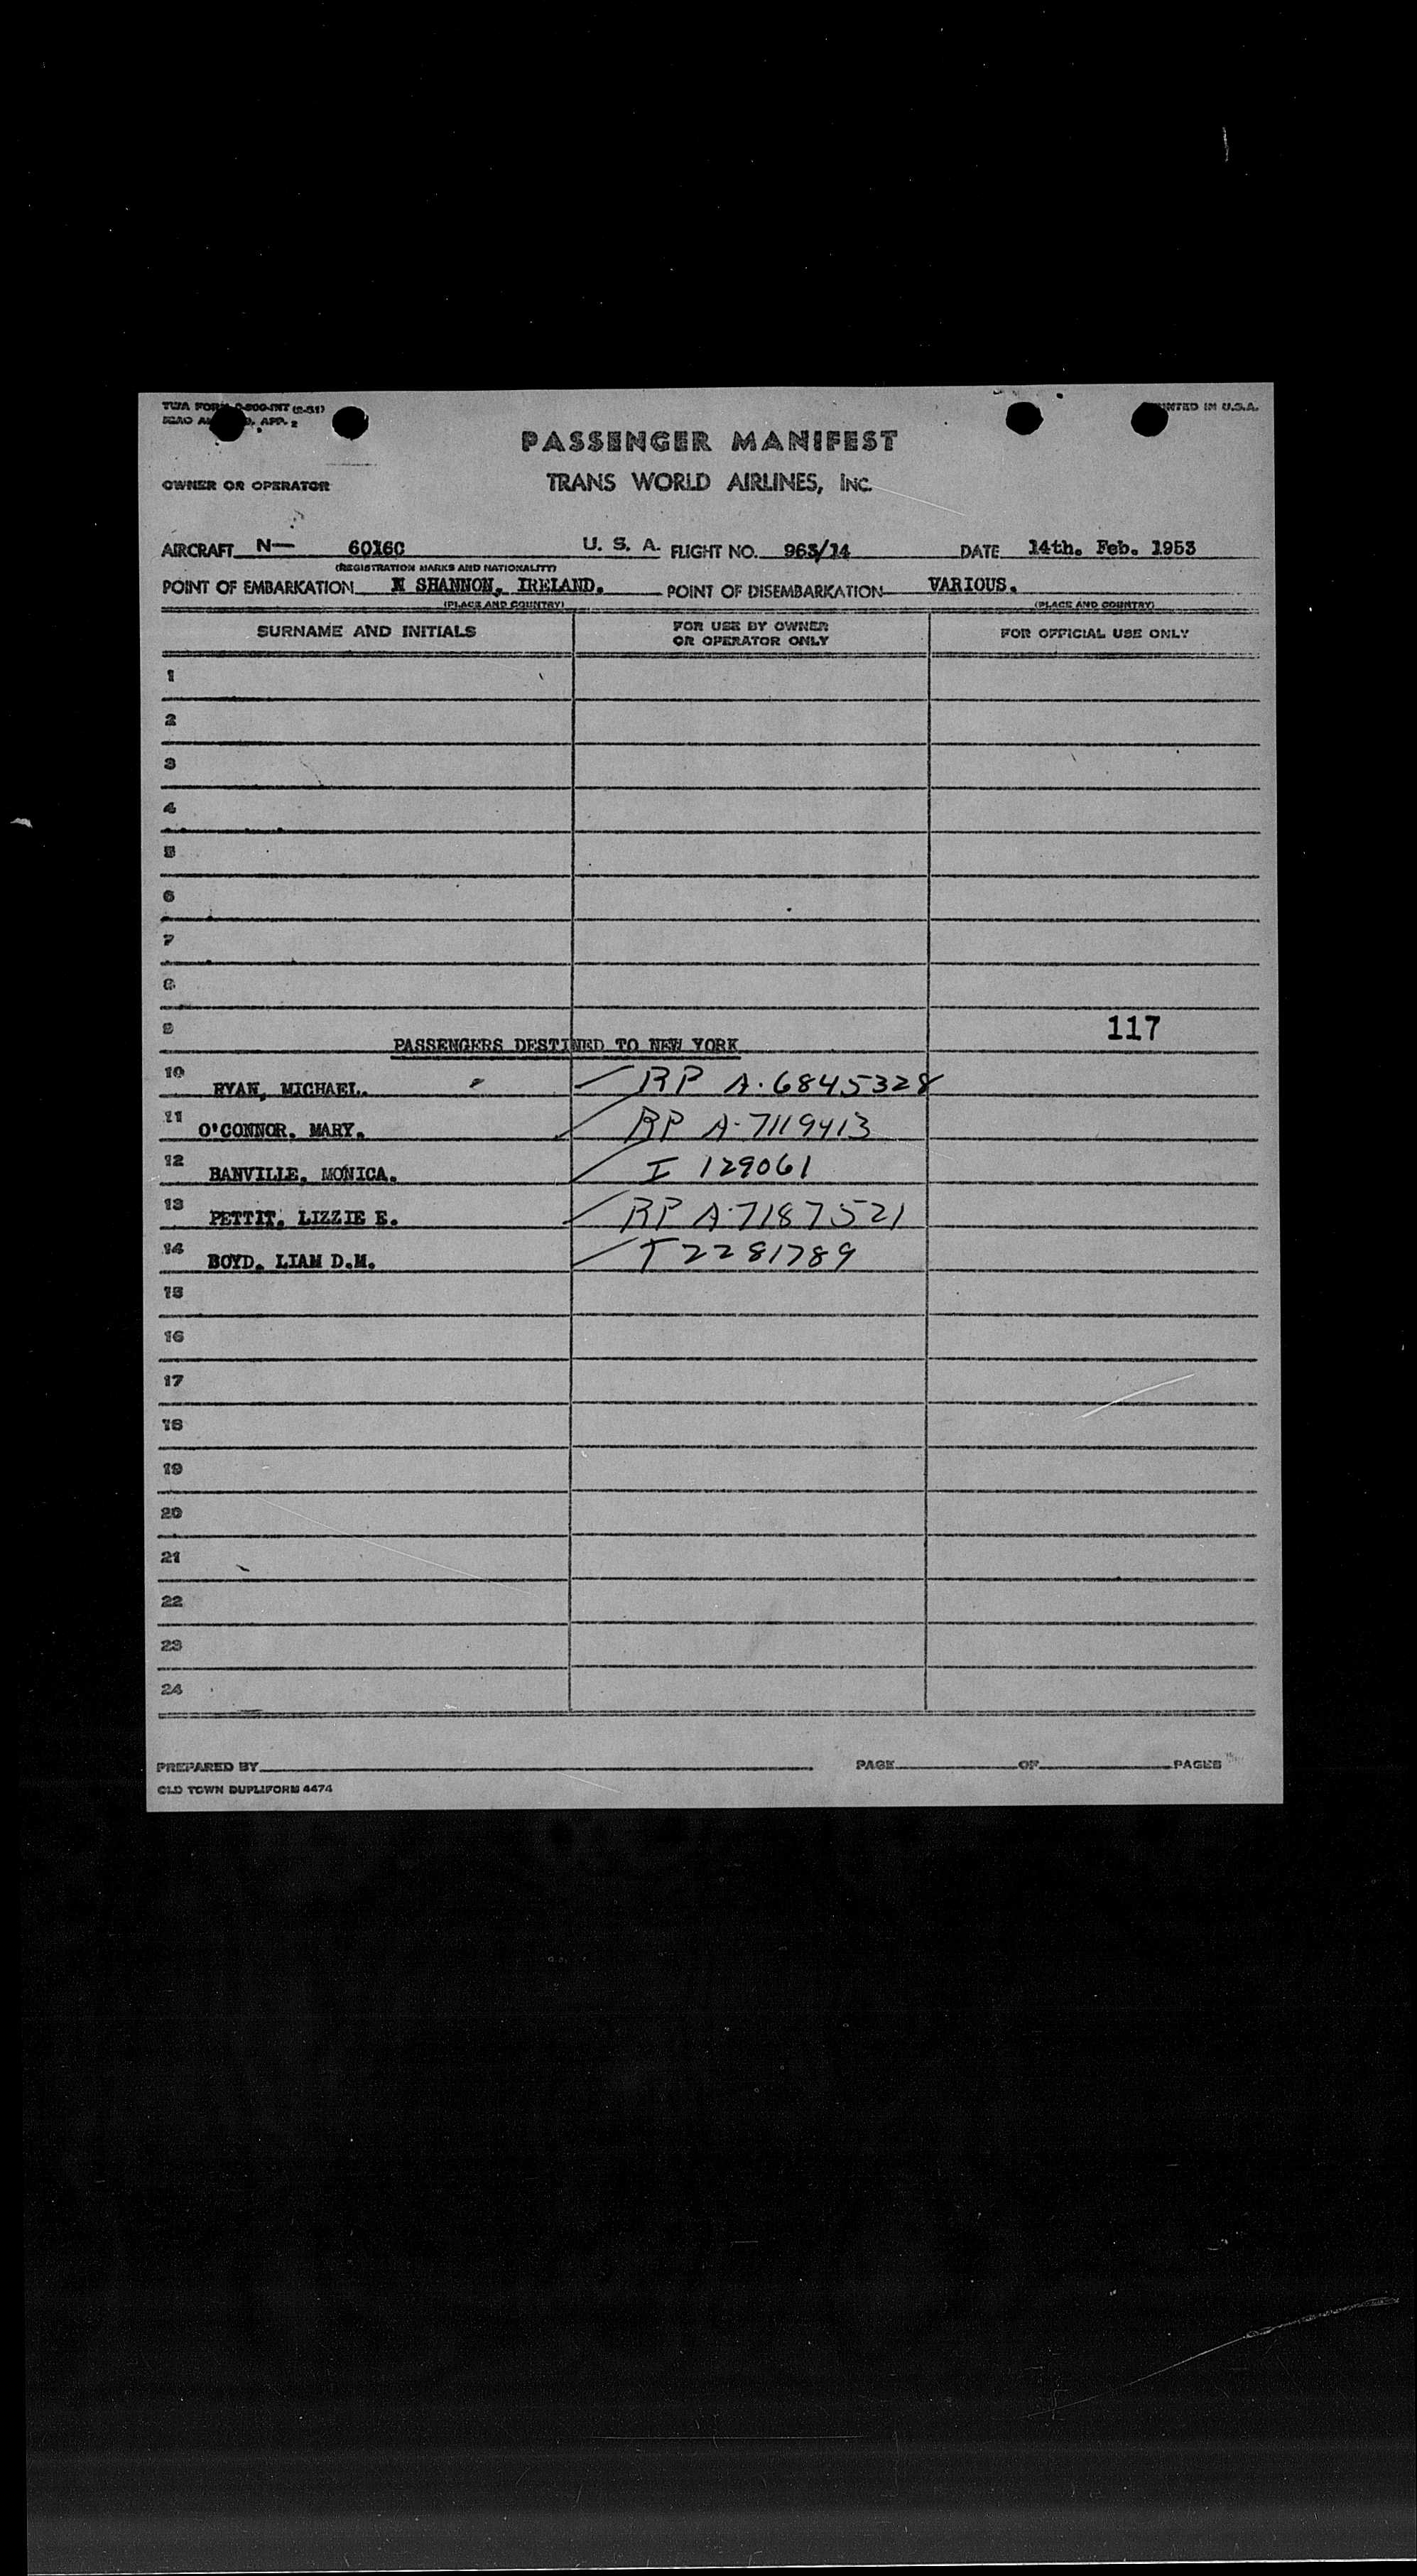 TWA FORM O-800-INT (2-51)
ICAO APP. 2
PRINTED IN U.S.A.
PASSENGER MANIFEST
OWNER OR OPERATOR TRANS WORLD AIRLINES, INC.
AIRCRAFT N— 60160 U. S. A. FLIGHT NO. 963/14 DATE 14th. Feb. 1953
(REGISTRATION MARKS AND NATIONALITY)
POINT OF EMBARKATION N SHANNON, IRELAND. POINT OF DISEMBARKATION VARIOUS.
(PLACE AND COUNTRY) (PLACE AND COUNTRY)
SURNAME AND INITIALS FOR USE BY OWNER OR OPERATOR ONLY FOR OFFICIAL USE ONLY
1
2
3
4
5
6
7
8
9 117
PASSENGERS DESTINED TO NEW YORK
10 RYAN, MICHAEL. RP A-6845328
11 O'CONNOR. MARY. RP A-7119413
12 BANVILLE. MONICA. I 129061
13 PETTIT. LIZZIE E. RP A-7187521
14 BOYD. LIAM D.M. T 2281789
15
16
17
18
19
20
21
22
23
24
PREPARED BY PAGE OF PAGES
OLD TOWN DUPLIFORM 4474